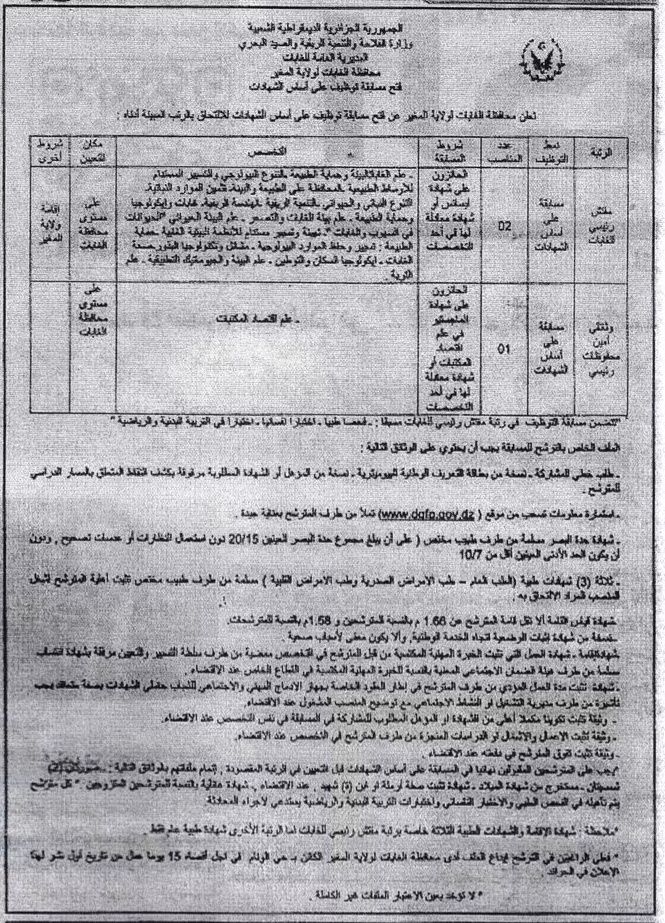 الجمهورية الجزائرية الديمقراطية الشعبية
وزارة الفلاحة والتنمية الريفية والصيد البحري
المديرية العامة للغابات
محافظة الغابات لولاية المغير
فتح مسابقة توظيف على أساس الشهادات
تعلن محافظة الغابات لولاية المغير عن فتح مسابقة توظيف على أساس الشهادات للالتحاق بالرتب المبينة أدناه :
الرتبة
نمط التوظيف
عدد المناصب
شروط المسابقة
التخصص
مكان التعيين
شروط أخرى
مفتش رئيسي للغابات
مسابقة على أساس الشهادات
02
الحائزون على شهادة ليسانس أو شهادة معادلة لها في أحد التخصصات
- علم الغابات البيئة وحماية الطبيعة - التنوع البيولوجي والتسيير المستدام
للأوساط الطبيعية - المحافظة على الطبيعة والبيئة - تثمين الموارد النباتية -
التنوع النباتي والحيواني - التنمية الريفية - الهندسة الريفية - غابات وإيكولوجيا
وحماية الطبيعة - علم بيئة الغابات والتصحر - علم البيئة الحيواني "الحيوانات
في السهوب والغابات" - تهيئة وتسيير مستدام للأنظمة البيئية الغابية - حماية
الطبيعة : تسيير وحفظ الموارد البيولوجية - مشاتل وتكنولوجيا البذور - هندسة
الغابات - إيكولوجيا السكان والتوطين - علم البيئة والجيوماتيك التطبيقية - علم
التربة .
على مستوى محافظة الغابات
إقامة ولاية المغير
وثائقي أمين محفوظات رئيسي
مسابقة على أساس الشهادات
01
الحائزون على شهادة الماجستير في علم اقتصاد المكتبات أو شهادة معادلة لها في أحد التخصصات
- علم اقتصاد المكتبات
على مستوى محافظة الغابات
"تتضمن مسابقة التوظيف في رتبة مفتش رئيسي للغابات مسبقا : - فحصا طبيا - اختبارا نفسانيا - اختبارا في التربية البدنية والرياضية "
الملف الخاص بالترشح للمسابقة يجب أن يحتوي على الوثائق التالية :
- طلب خطي للمشاركة - نسخة من بطاقة التعريف الوطنية البيومترية - نسخة من المؤهل أو الشهادة المطلوبة مرفوقة بكشف النقاط المتعلق بالمسار الدراسي
للمترشح .
- استمارة معلومات تسحب من موقع ( www.dgfp.gov.dz) تملأ من طرف المترشح بعناية جيدة .
- شهادة حدة البصر مسلمة من طرف طبيب مختص ( على أن يبلغ مجموع حدة البصر العينين 20/15 دون استعمال النظارات أو عدسات تصحيح , ودون
أن يكون الحد الأدنى للعينين أقل من 10/7
- ثلاثة (3) شهادات طبية (الطب العام - طب الأمراض الصدرية وطب الأمراض القلبية ) مسلمة من طرف طبيب مختص تثبت أهلية المترشح لشغل
المنصب المراد الالتحاق به .
شهادة قياس القامة ألا تقل قامة المترشح عن 1.66 م بالنسبة للمترشحين و 1.58م بالنسبة للمترشحات.
- نسخة من شهادة إثبات الوضعية تجاه الخدمة الوطنية, وألا يكون معفى لأسباب صحية
شهادة إقامة - شهادة العمل التي تثبت الخبرة المهنية المكتسبة من قبل المترشح في التخصص ممضية من طرف سلطة التسيير والتعيين مرفقة بشهادة انتساب
مسلمة من طرف هيئة الضمان الاجتماعي المعنية بالنسبة للخبرة المهنية المكتسبة في القطاع الخاص عند الاقتضاء.
- شهادة تثبت مدة العمل المؤدى من طرف المترشح في إطار العقود الخاصة بجهاز الإدماج المهني والاجتماعي للشباب حاملي الشهادات بصفة متعاقد يجب
تأشيرة من طرف مديرية التشغيل أو النشاط الاجتماعي مع توضيح المنصب المشغول عند الاقتضاء.
- وثيقة تثبت تكوينا مكملا أعلى من الشهادة أو المؤهل المطلوب للمشاركة في المسابقة في نفس التخصص عند الاقتضاء.
- وثيقة تثبت الأعمال والأشغال أو الدراسات المنجزة من طرف المترشح في التخصص عند الاقتضاء.
- وثيقة تثبت تفوق المترشح في دفعته عند الاقتضاء .
"يجب على المترشحين المقبولين نهائيا في المسابقة على أساس الشهادات قبل التعيين في الرتبة المقصودة , إتمام ملفاتهم بالوثائق التالية : - صورتان (2)
شمسيتان - مستخرج من شهادة الميلاد - شهادة تثبت صفة أرملة أو ابن (ة) شهيد , عند الاقتضاء , شهادة عائلية بالنسبة للمترشحين المتزوجين " كل مترشح
يتم تأهيله في الفحص الطبي والاختبار النفساني واختبارات التربية البدنية والرياضية يستدعى لإجراء المحادثة.
"ملاحظة : شهادة الإقامة والشهادات الطبية الثلاثة خاصة برتبة مفتش رئيسي للغابات أما الرتبة الأخرى شهادة طبية عام فقط .
* فعلى الراغبين في الترشح إيداع الملف لدى محافظة الغابات لولاية المغير الكائن بـ حي الوئام في أجل أقصاه 15 يوما عمل من تاريخ أول نشر لهذا
الإعلان في الجرائد .
* لا تؤخذ بعين الاعتبار الملفات غير الكاملة .